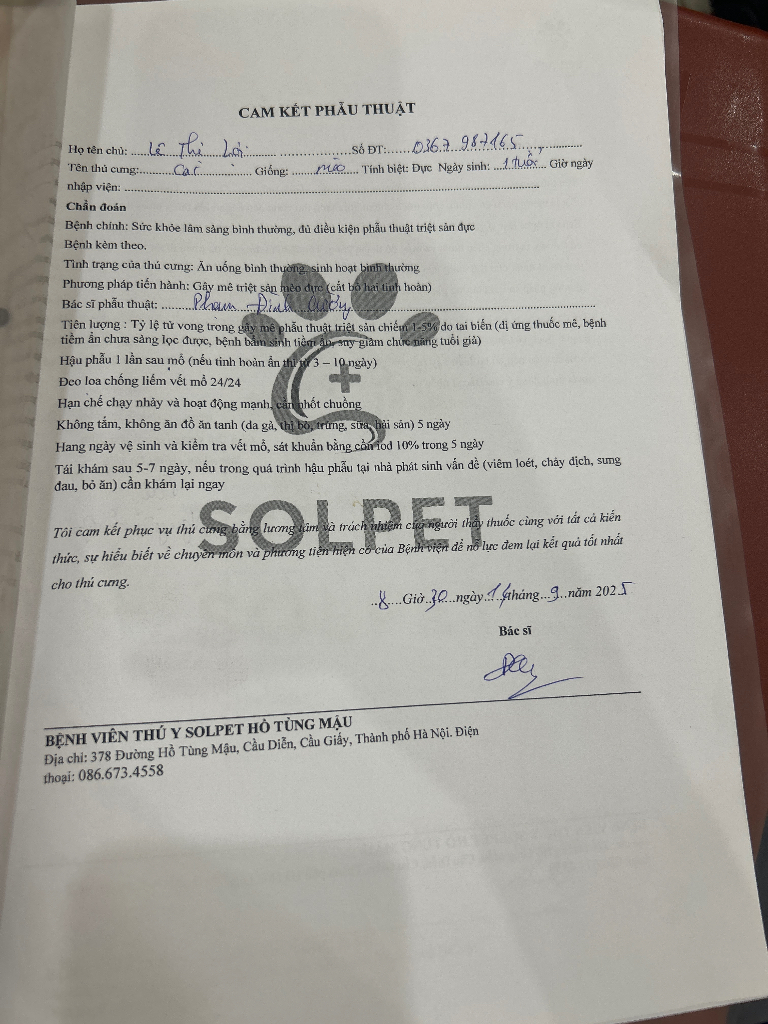 CAM KẾT PHẪU THUẬT
Họ tên chủ: Lê Thị Lợi Số ĐT: 0367 987165
Tên thú cưng: Giống: mèo Tính biệt: Đực Ngày sinh: 1 tuổi Giờ ngày
nhập viện:
Chẩn đoán
Bệnh chính: Sức khỏe lâm sàng bình thường, đủ điều kiện phẫu thuật triệt sản đực
Bệnh kèm theo.
Tình trạng của thú cưng: Ăn uống bình thường, sinh hoạt bình thường
Phương pháp tiến hành: Gây mê triệt sản mèo đực (cắt bỏ hai tinh hoàn)
Bác sĩ phẫu thuật: Phạm Đình Cường
Tiên lượng : Tỷ lệ tử vong trong gây mê phẫu thuật triệt sản chiếm 1-5% do tai biến (dị ứng thuốc mê, bệnh
tiềm ẩn chưa sàng lọc được, bệnh bẩm sinh tiềm ẩn, suy giảm chức năng tuổi già)
Hậu phẫu 1 lần sau mổ (nếu tinh hoàn ẩn thì từ 3 – 10 ngày)
Đeo loa chống liếm vết mổ 24/24
Hạn chế chạy nhảy và hoạt động mạnh, cần nhốt chuồng
Không tắm, không ăn đồ ăn tanh (da gà, thị bò, trứng, sữa, hải sản) 5 ngày
Hang ngày vệ sinh và kiểm tra vết mổ, sát khuẩn bằng cồn iod 10% trong 5 ngày
Tái khám sau 5-7 ngày, nếu trong quá trình hậu phẫu tại nhà phát sinh vấn đề (viêm loét, chảy dịch, sưng
đau, bỏ ăn) cần khám lại ngay
SOLPET
Tôi cam kết phục vụ thú cưng bằng lương tâm và trách nhiệm của người thầy thuốc cùng với tất cả kiến
thức, sự hiểu biết về chuyên môn và phương tiện hiện có của Bệnh viện để nỗ lực đem lại kết quả tốt nhất
cho thú cưng.
8 Giờ 30 ngày 14 tháng 9 năm 2025
Bác sĩ
BỆNH VIÊN THÚ Y SOLPET HỒ TÙNG MẬU
Địa chỉ: 378 Đường Hồ Tùng Mậu, Cầu Diễn, Cầu Giấy, Thành phố Hà Nội. Điện
thoại: 086.673.4558